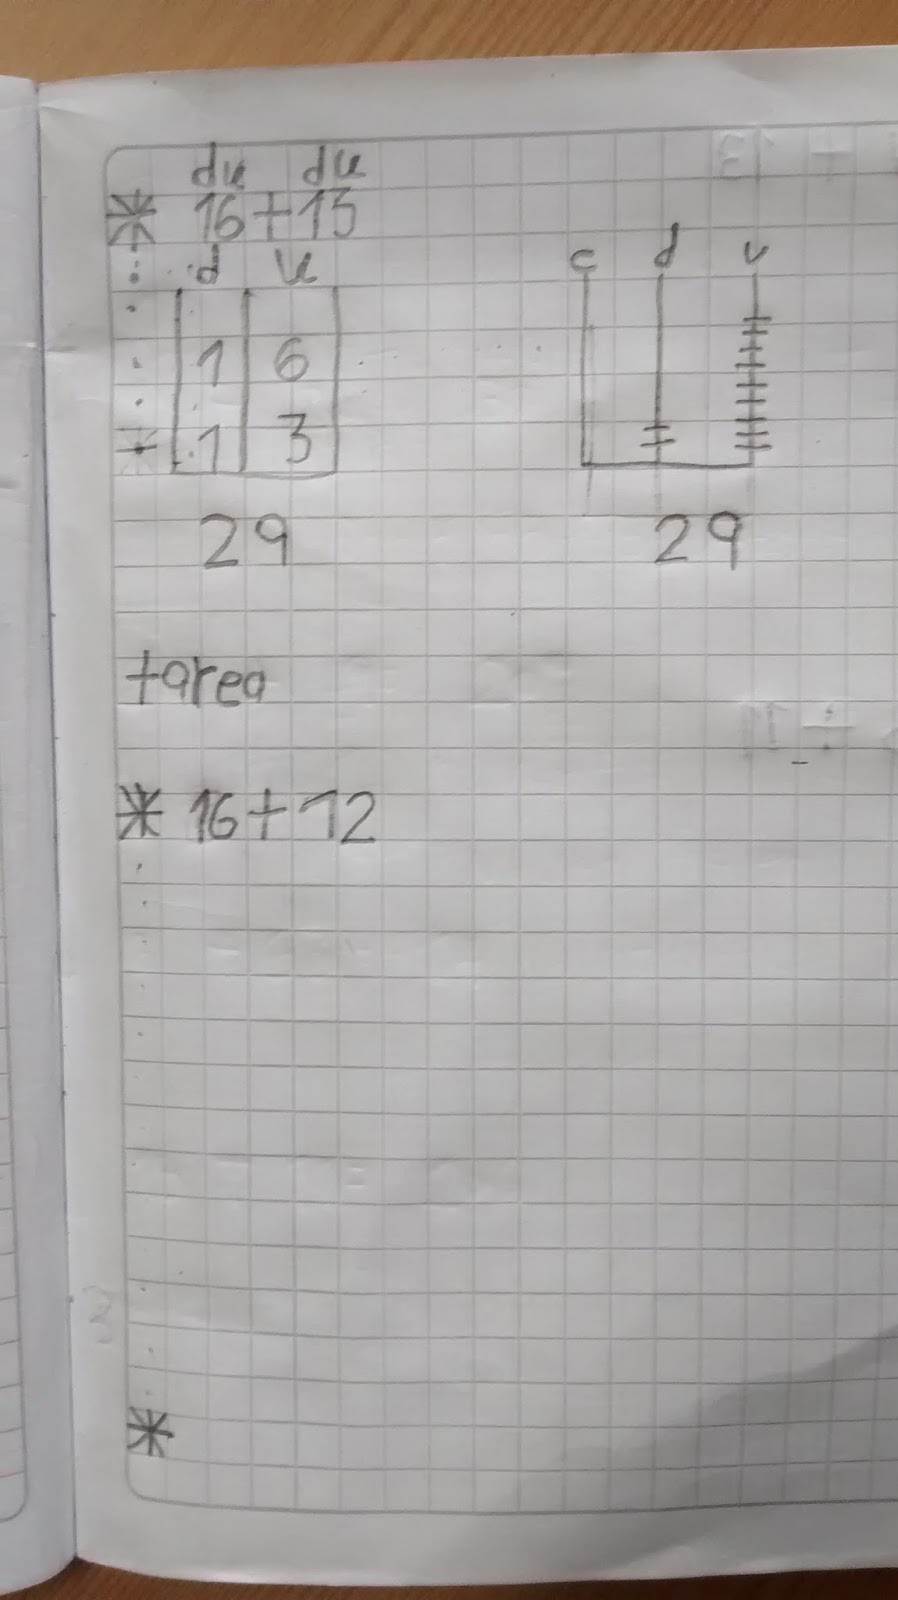 du du
* 16+13
d u
1 6
1 3
29
c d u
29
tarea
* 16+12
*